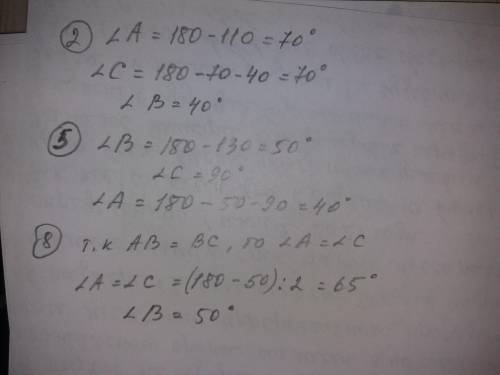 2 ∠A = 180 - 110 = 70°
∠C = 180 - 70 - 40 = 70°
∠B = 40°
5 ∠B = 180 - 130 = 50°
∠C = 90°
∠A = 180 - 50 - 90 = 40°
8 т.к AB = BC, то ∠A = ∠C
∠A = ∠C = (180 - 50) : 2 = 65°
∠B = 50°